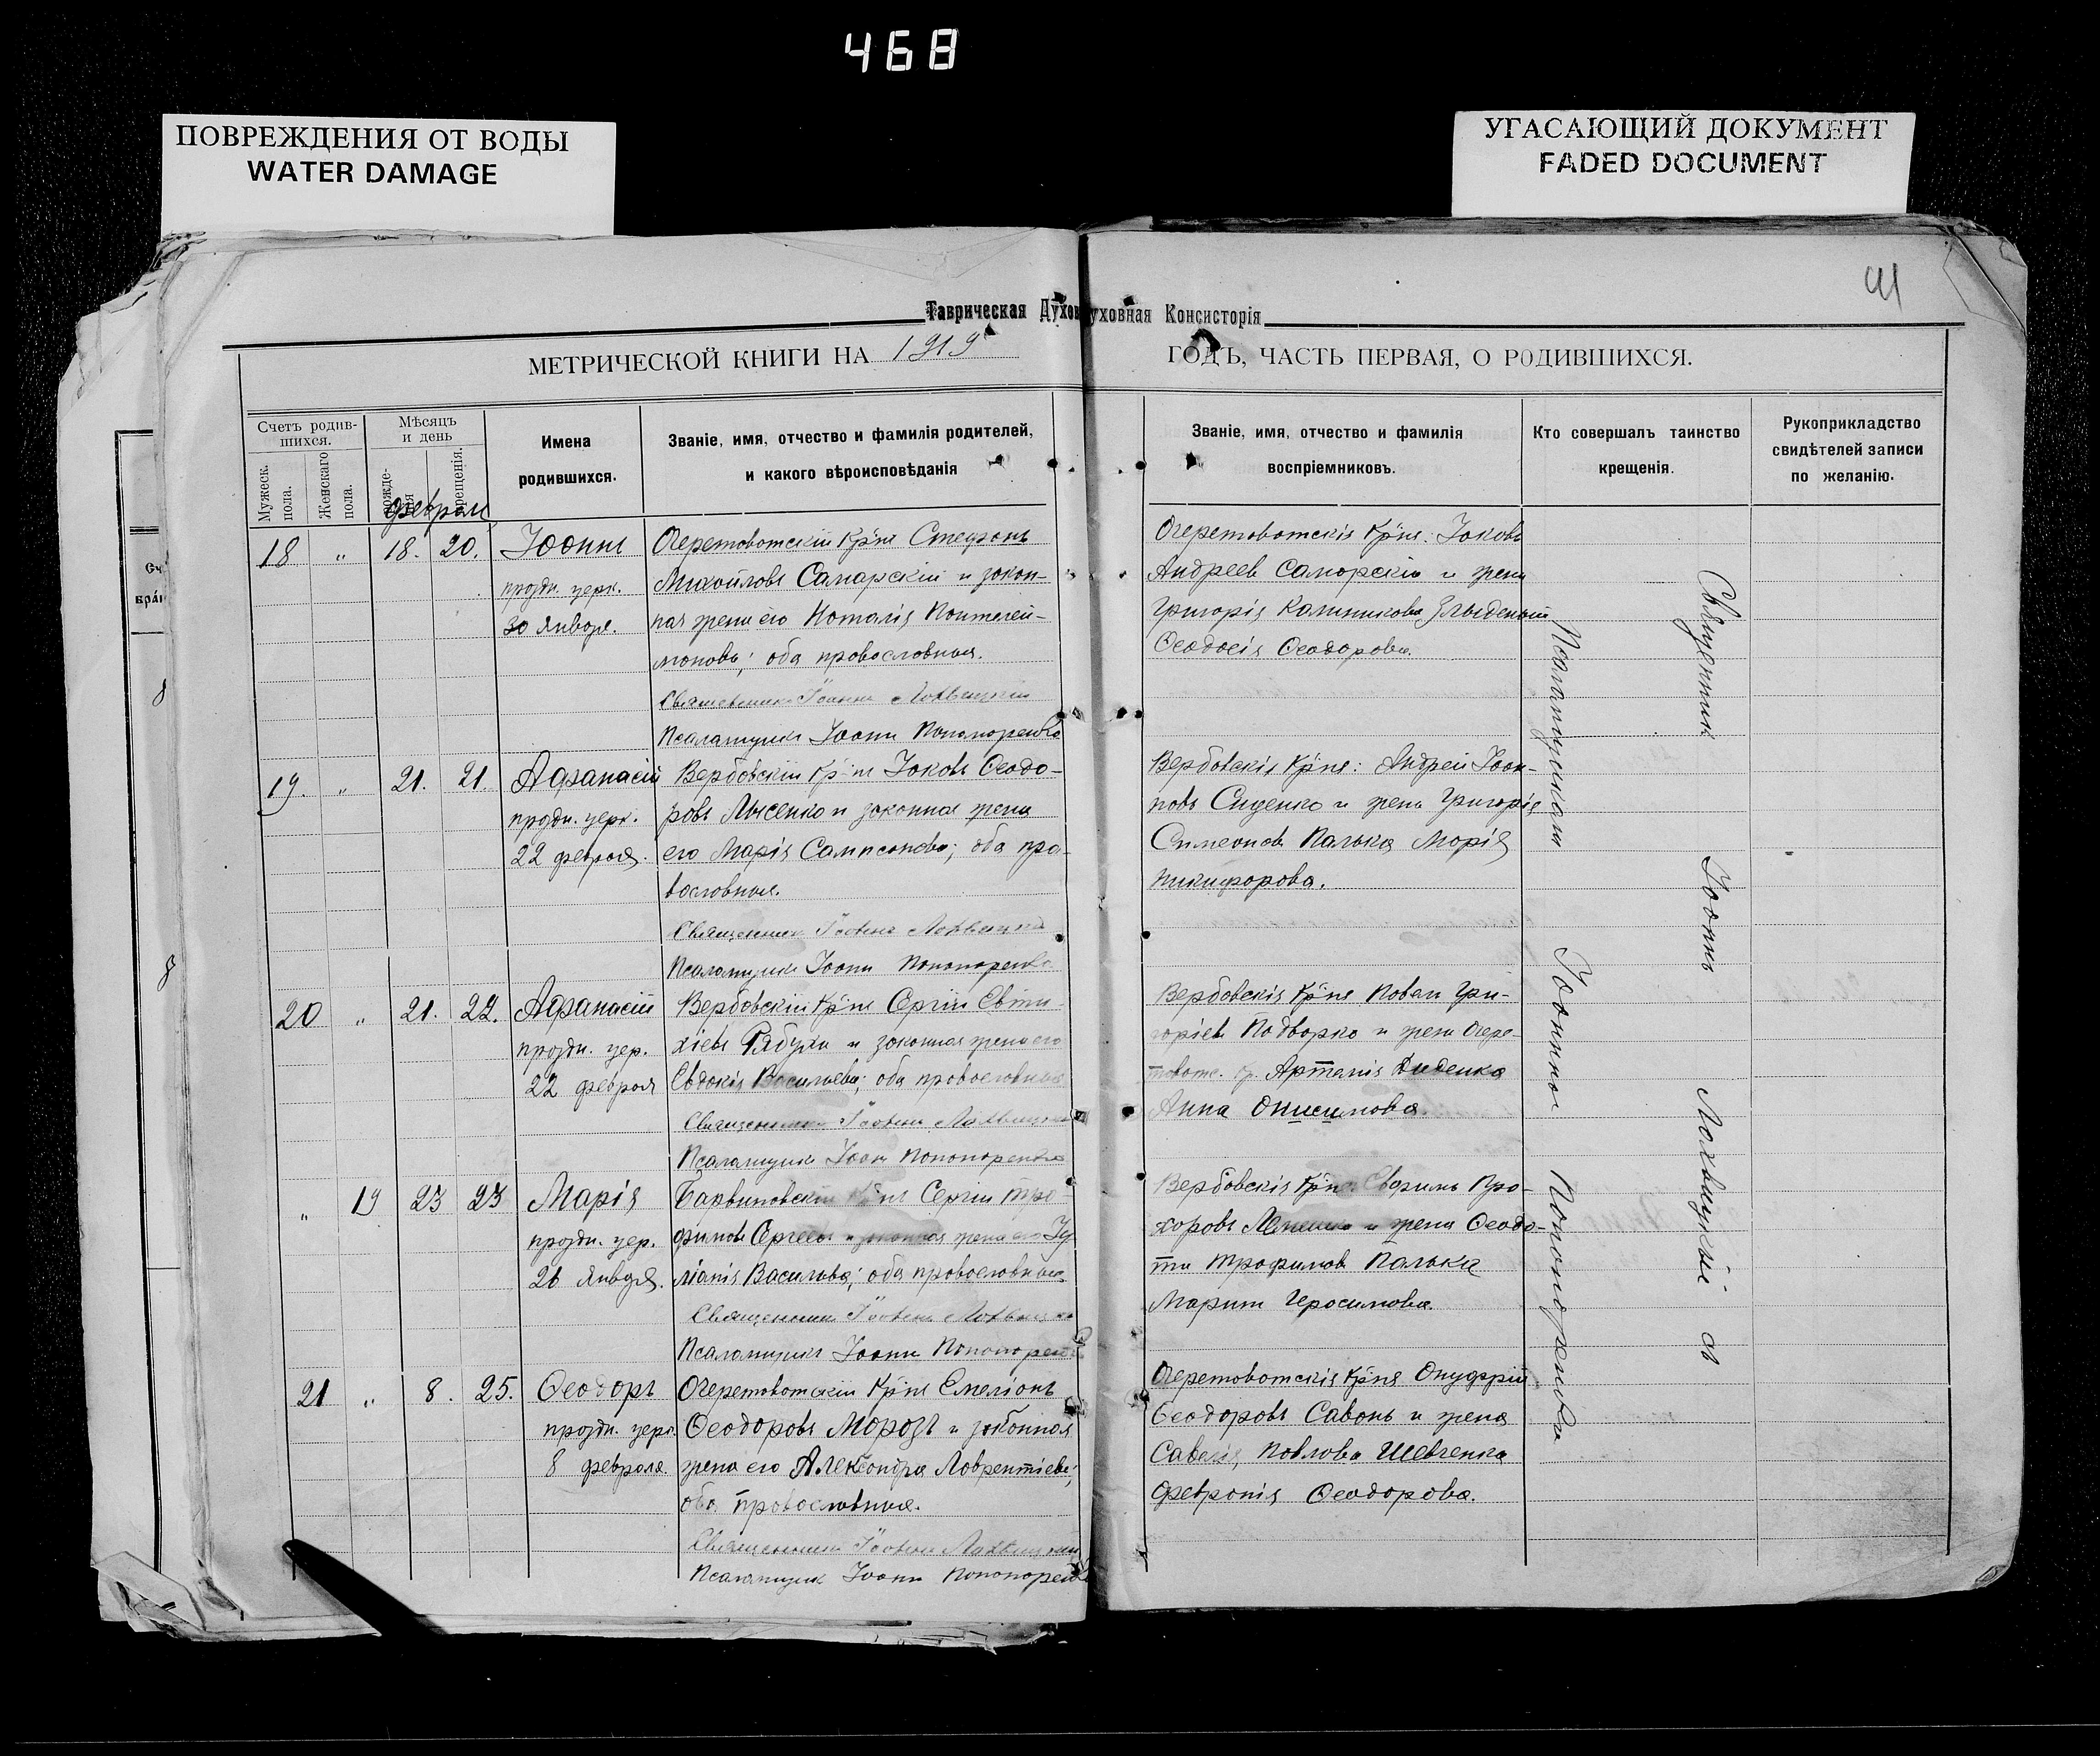 468
ПОВРЕЖДЕНИЯ ОТ ВОДЫ
WATER DAMAGE
УГАСАЮЩИЙ ДОКУМЕНТ
FADED DOCUMENT
41
Таврическая Духовная Консисторія
МЕТРИЧЕСКОЙ КНИГИ НА 1919 ГОДЪ, ЧАСТЬ ПЕРВАЯ, О РОДИВШИХСЯ.
Счетъ родившихся.
Мужеск. пола.
Женскаго пола.
Мѣсяцъ и день
рожденія
крещенія.
Имена родившихся.
Званіе, имя, отчество и фамилія родителей,
и какого вѣроисповѣданія
Званіе, имя, отчество и фамилія
воспріемниковъ.
Кто совершалъ таинство
крещенія.
Рукоприкладство
свидѣтелей записи
по желанію.
февраль
18 " 18. 20. Іоаннъ
праздн. церк.
30 января.
Очеретоватскій кр-нъ Стефанъ
Михайловъ Самарскій и закон-
ная жена его Наталія Пантелей-
монова; оба православные.
Священникъ Іоаннъ Лохвицкій
Псаломщикъ Іоаннъ Пономаренко
Очеретоватскія кр-не: Іаковъ
Андреевъ Самарскій и жена
Григорія Калинникова
Ѳеодосія Ѳеодорова.
19. " 21. 21. Аѳанасій
праздн. церк.
22 февраля.
Вербовскій кр-нъ Іаковъ Ѳеодо-
ровъ Лысенко и законная жена
его Марія Сампсонова; оба пра-
вославные.
Священникъ Іоаннъ Лохвицкій
Псаломщикъ Іоаннъ Пономаренко
Вербовскія кр-не: Андрей Іоан-
новъ Сиденко и жена Григорія
Симеонова Палька Марія
Никифорова.
20 " 21. 22. Аѳанасій
праздн. цер.
22 февраля
Вербовскій кр-нъ Сергій Евти-
хіевъ Рябуха и законная жена его
Евдокія Васильева; оба православные
Священникъ Іоаннъ Лохвицкій
Псаломщикъ Іоаннъ Пономаренко
Вербовскія кр-не Павелъ Гри-
горіевъ Подворко и жена Очере-
товатс. кр. Артемія Диденка
Анна Онисимова.
" 19 23 23 Марія
праздн. цер.
26 января.
Барвиновскій кр-нъ Сергій Тро-
фимовъ Сергеевъ и законная жена его Іу-
ліанія Васильева; оба православные
Священникъ Іоаннъ Лохвицкій
Псаломщикъ Іоаннъ Пономаренко
Вербовскія кр-не: Ефремъ Про-
хоровъ и жена Ѳеодо-
та Трофимова Палька
Марина Герасимова.
21 " 8. 25. Ѳеодоръ
праздн. церк.
8 февраля.
Очеретоватскій кр-нъ Емеліанъ
Ѳеодоровъ Морозъ и законная
жена его Александра Лаврентіева;
оба православные.
Священникъ Іоаннъ Лохвицкій
Псаломщикъ Іоаннъ Пономаренко
Очеретоватскія кр-не Онуфрій
Ѳеодоровъ Савонь и жена
Савелія Павлова Шевченка
Февронія Ѳеодорова.
Священникъ Іоаннъ Лохвицкій съ
Псаломщикомъ Іоанномъ Пономаренко